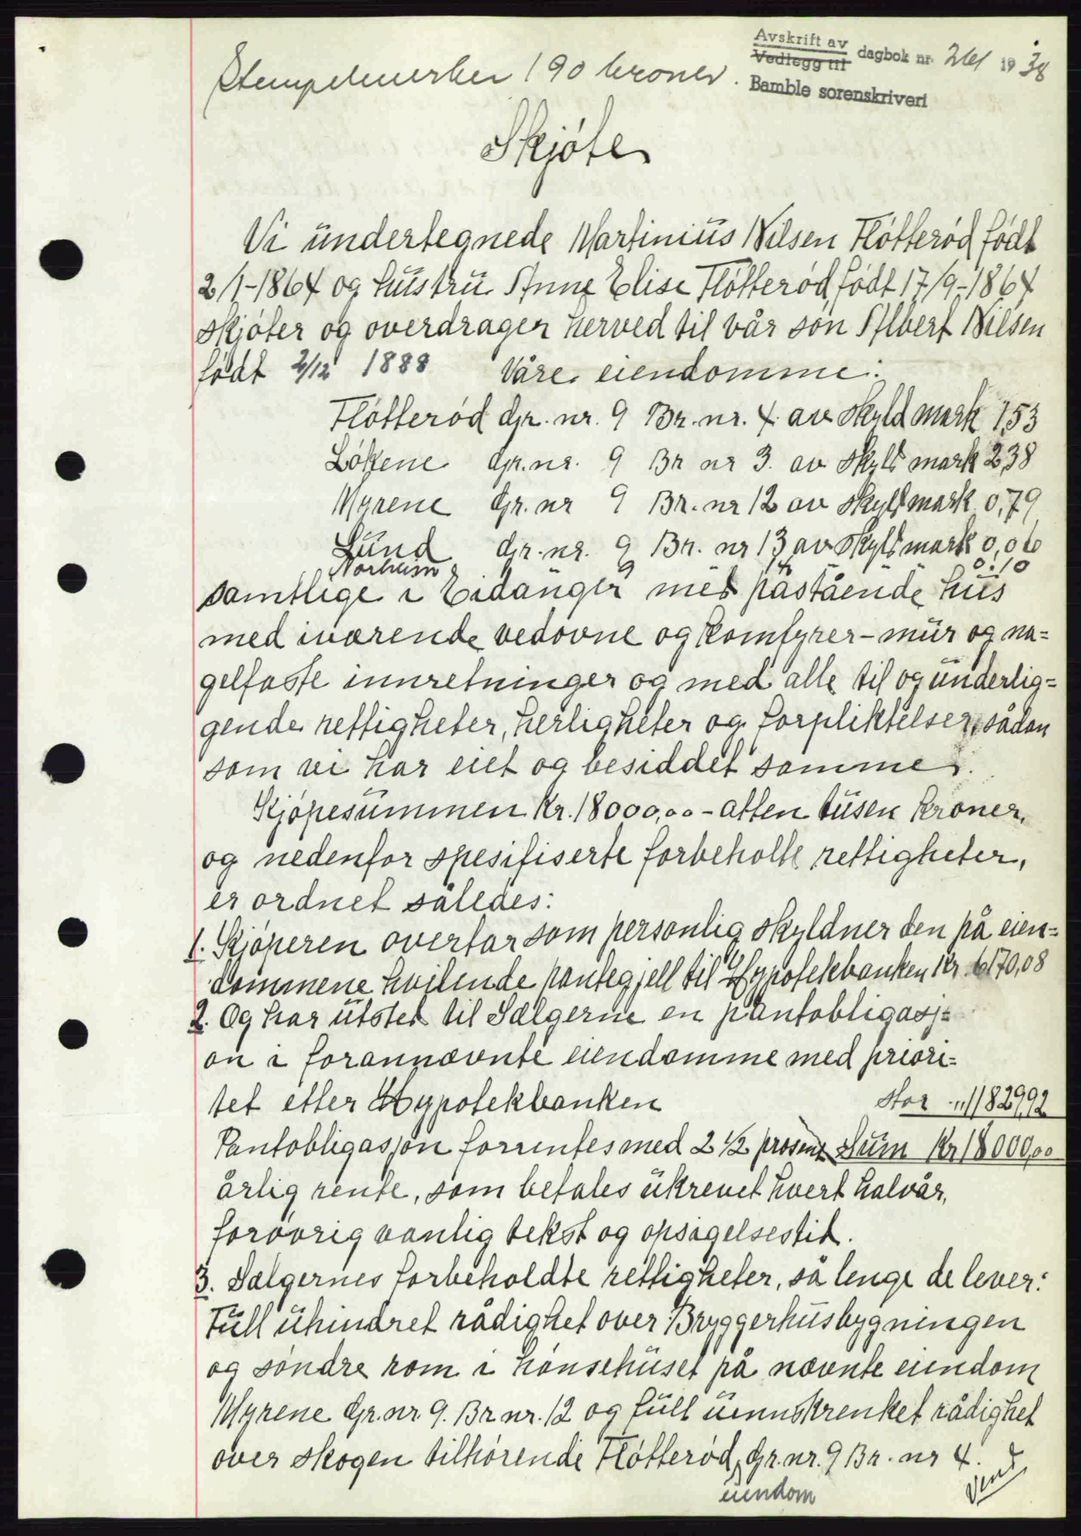 Stempelmerker 190 kroner.
Avskrift av
Vedlegg til dagbok nr. 261 1938
Bamble sorenskriveri
Skjøte
Vi undertegnede Martinius Nilsen Fløtterød født
2/1-1864 og hustru Anne Elise Fløtterød født 17/9-1864
skjøter og overdrager herved til vår søn Albert Nilsen
født 2/12 1888 våre eiendomme:
Fløtterød Gr. nr. 9 Br. nr. 4 av skyld mark 1,53
Løkene Gr. nr. 9 Br nr 3. av skyld mark 2,38
Myrene Gr. nr 9 Br. nr 12 av skyld mark 0,79
Lund Gr. nr. 9 Br. nr 13 av skyld mark 0,06
Norheim " 9 0.10
samtlige i Eidanger med påstående hus
med iværende vedovne og komfyrer - mur og na=
gelfaste innretninger og med alle til og underlig=
gende rettigheter, herligheter og forpliktelser, sådan
som vi har eiet og besiddet samme.
Kjøpesummen Kr. 18000,00 - atten tusen kroner,
og nedenfor spesifiserte forbeholte rettigheter,
er ordnet således:
1. Kjøperen overtar som personlig skyldner den på eien=
dommene hvilende pantegjell til Hypotekbanken Kr. 6170,08
2. Og har utsted til Sælgerne en pantobligasj=
on i forannævnte eiendomme med priori=
tet etter Hypotekbanken stor " 11829,92
Pantobligasjon forrentes med 2 1/2 prosent Sum Kr 18000,00
årlig rente, som betales ukrevet hvert halvår,
forøvrig vanlig tekst og opsigelsestid.
3. Sælgernes forbeholdte rettigheter, så lenge de lever:
Full uhindret rådighet over Bryggerhusbygningen
og søndre rom i hønsehuset på nævnte eiendom
Myrene Gr. nr 9. Br nr. 12 og full uinnskrenket rådighet
over skogen tilhørende Fløtterød, Gr. nr. 9 Br. nr 4.
eiendom
Vend